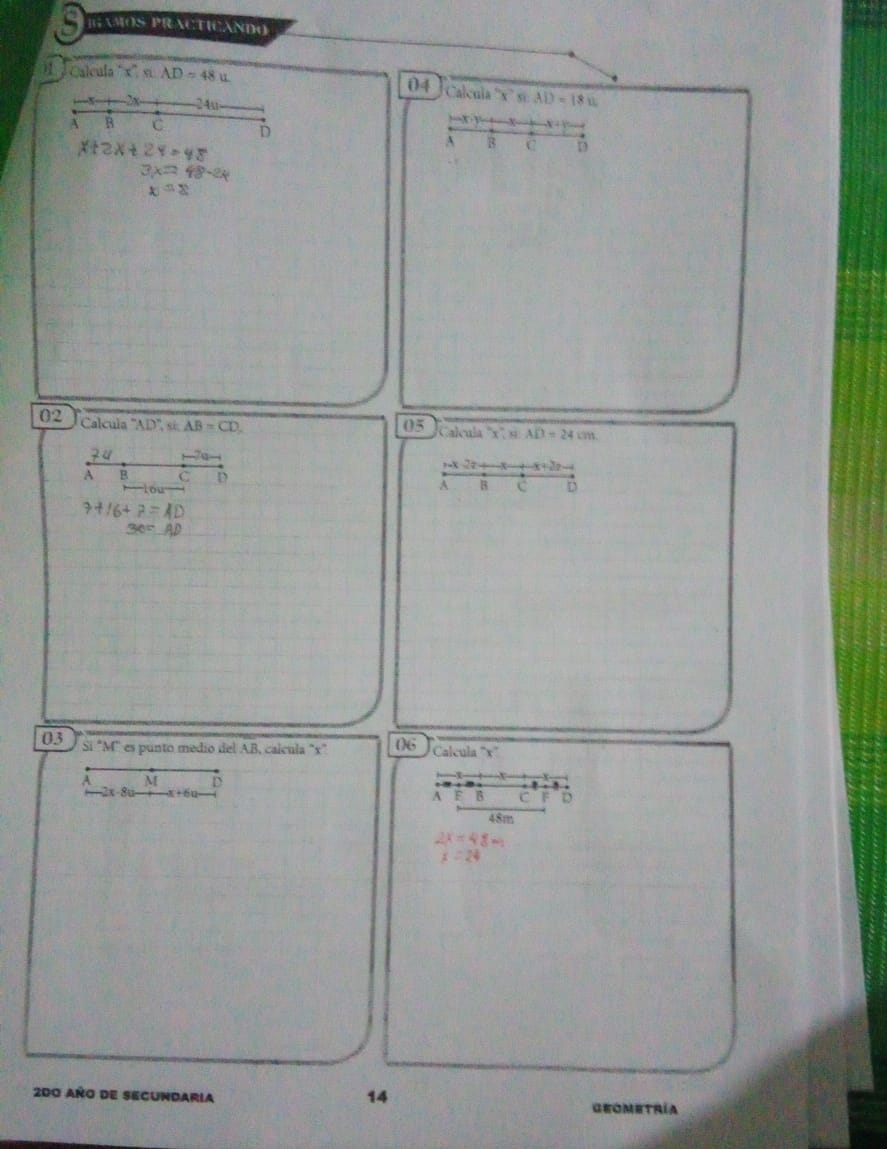 SIGAMOS PRACTICANDO
01 Calcula "x", si: AD = 48 u.
x 2x 24u
A B C D
x+2x+24=48
3x=48-24
x=8
02 Calcula "AD", si: AB = CD.
7u 7u
A B C D
16u
7+16+7=AD
30= AD
03 Si "M" es punto medio del AB, calcula "x"
A M D
2x-8u x+6u
04 Calcula "x" si: AD = 18 u.
x-y x x+y
A B C D
05 Calcula "x", si: AD = 24 cm.
x-2z x x+2z
A B C D
06 Calcula "x"
x x x
A E B C F D
48m
2x=48m
x=24
2DO AÑO DE SECUNDARIA 14 GEOMETRÍA